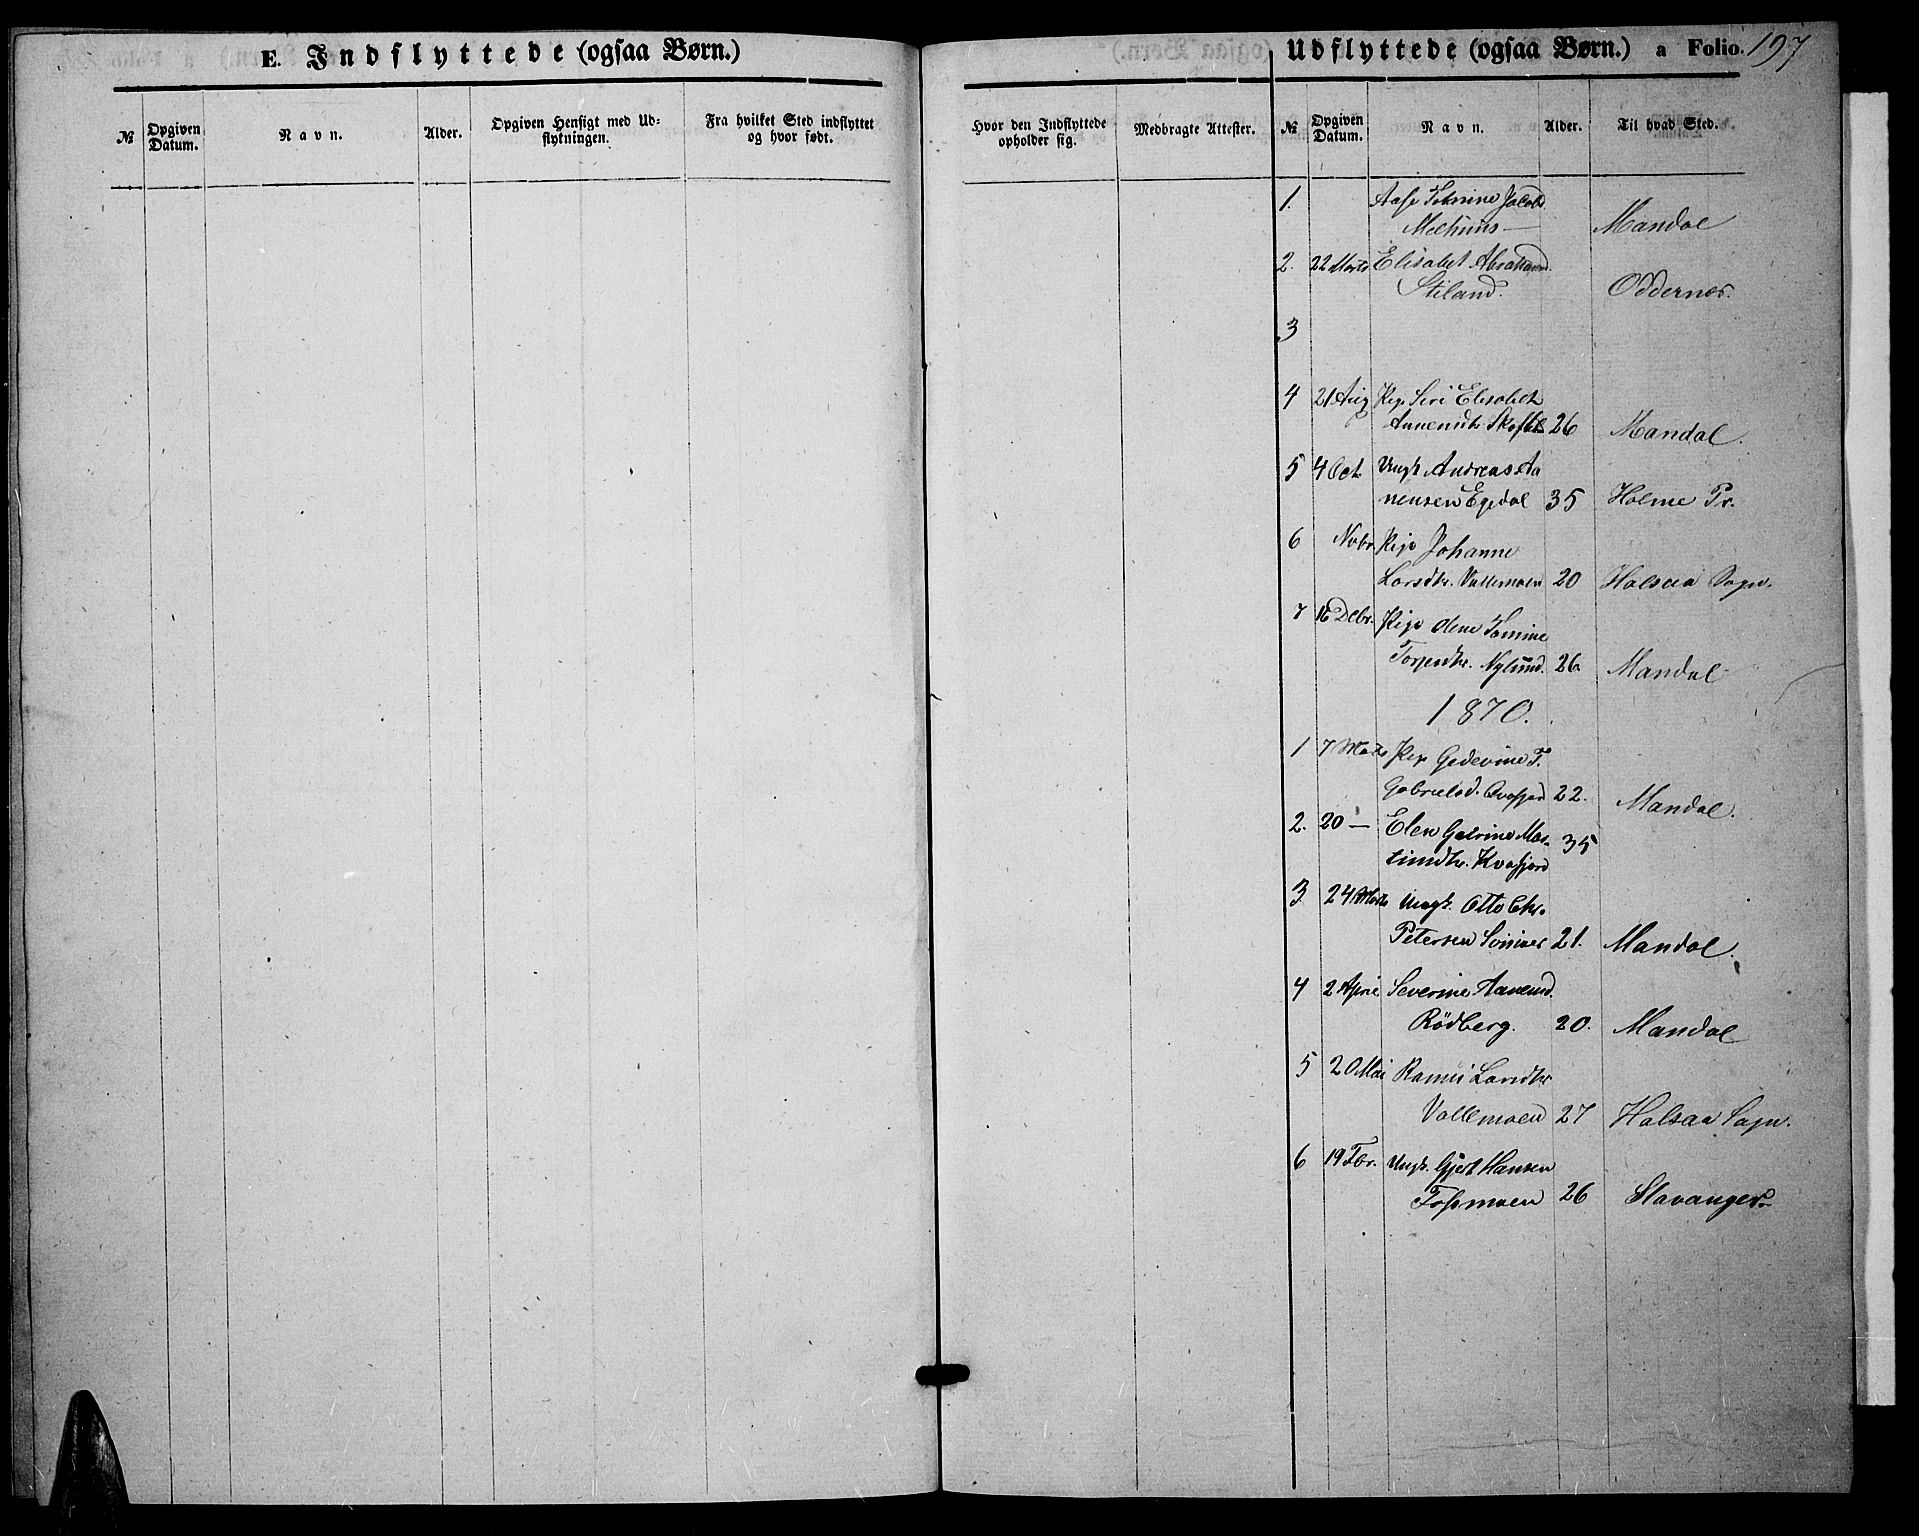 E. Indflyttede (ogsaa Børn.)
№
Opgiven Datum.
Navn.
Alder.
Opgiven Hensigt med Udflytningen.
Fra hvilket Sted indflyttet og hvor født.
Udflyttede (ogsaa Børn.) a Folio. 197
Hvor den Indflyttede opholder sig.
Medbragte Attester.
№
Opgiven Datum.
Navn.
Alder.
Til hvad Sted.
1. Aase Jacobs.
Mandal
2. 22 Marts Elisabet Abraham
Stiland. Oddernæs.
3
4 21 Aug Pige Siri Elisabeth
26 Mandal.
5 4 Oct. Ungk Andreas Aa
nensen Egedal 35 Holme Pr.
6 Nvbr. Pige Johanne
Larsdtr. Vallemoen 20 Halsaa Sogn.
7 16 Dcbr. Pige Olene Tomine
Torjersdtr. Nylund. 26. Mandal
1870.
1 7 Marts Pige Gedevine T.
Gabrielsd. 22. Mandal.
2. 20 — Elen
Kvafjord 35
3. 24 Marts Ungk. Otto Chr.
Petersen 21. Mandal.
4 2 April Severine Aanensd.
Rödberg. 20. Mandal
5 20 Mai Larsdtr
Vallemoen 27 Halsaa Sogn.
6 19 Fbr. Ungk. Gjert Hansen
Fossmoen 26 Stavanger